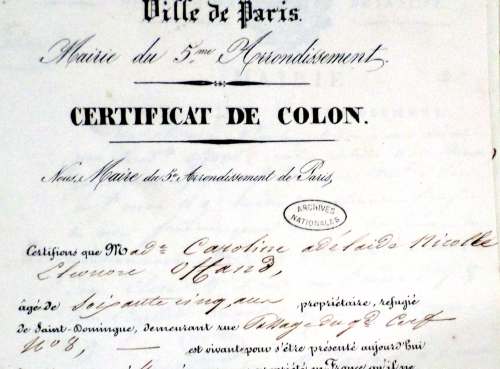 Ville de Paris.
Mairie du 5me Arrondissement.
CERTIFICAT DE COLON.
Nous, Maire du 5e Arrondissement de Paris,
ARCHIVES
NATIONALES
Certifions que Made Caroline adélaïde Nicolle
Eléonore Offand,
âgé de Soixante cinq ans, propriétaire, refugié
de Saint-Domingue, demeurant rue Passage du gd Cerf
No 8, — est vivant pour s'être présenté aujourd'hui
propriété en France qu'il ne